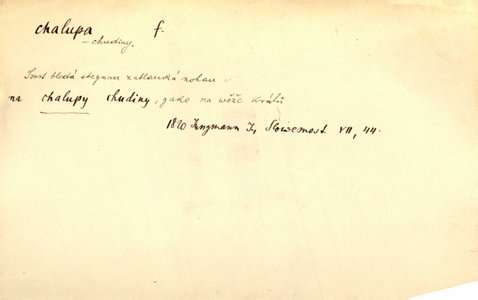 chalupa f.
- chudiny.
Smrt bledá stegnau zatlauká nohau
na chalupy chudiny, gako na wěže králů
1820 Jungmann J., Slowesnost VII, 44.